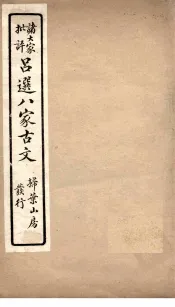 諸大家
批評
呂選八家古文
掃葉山房
發行